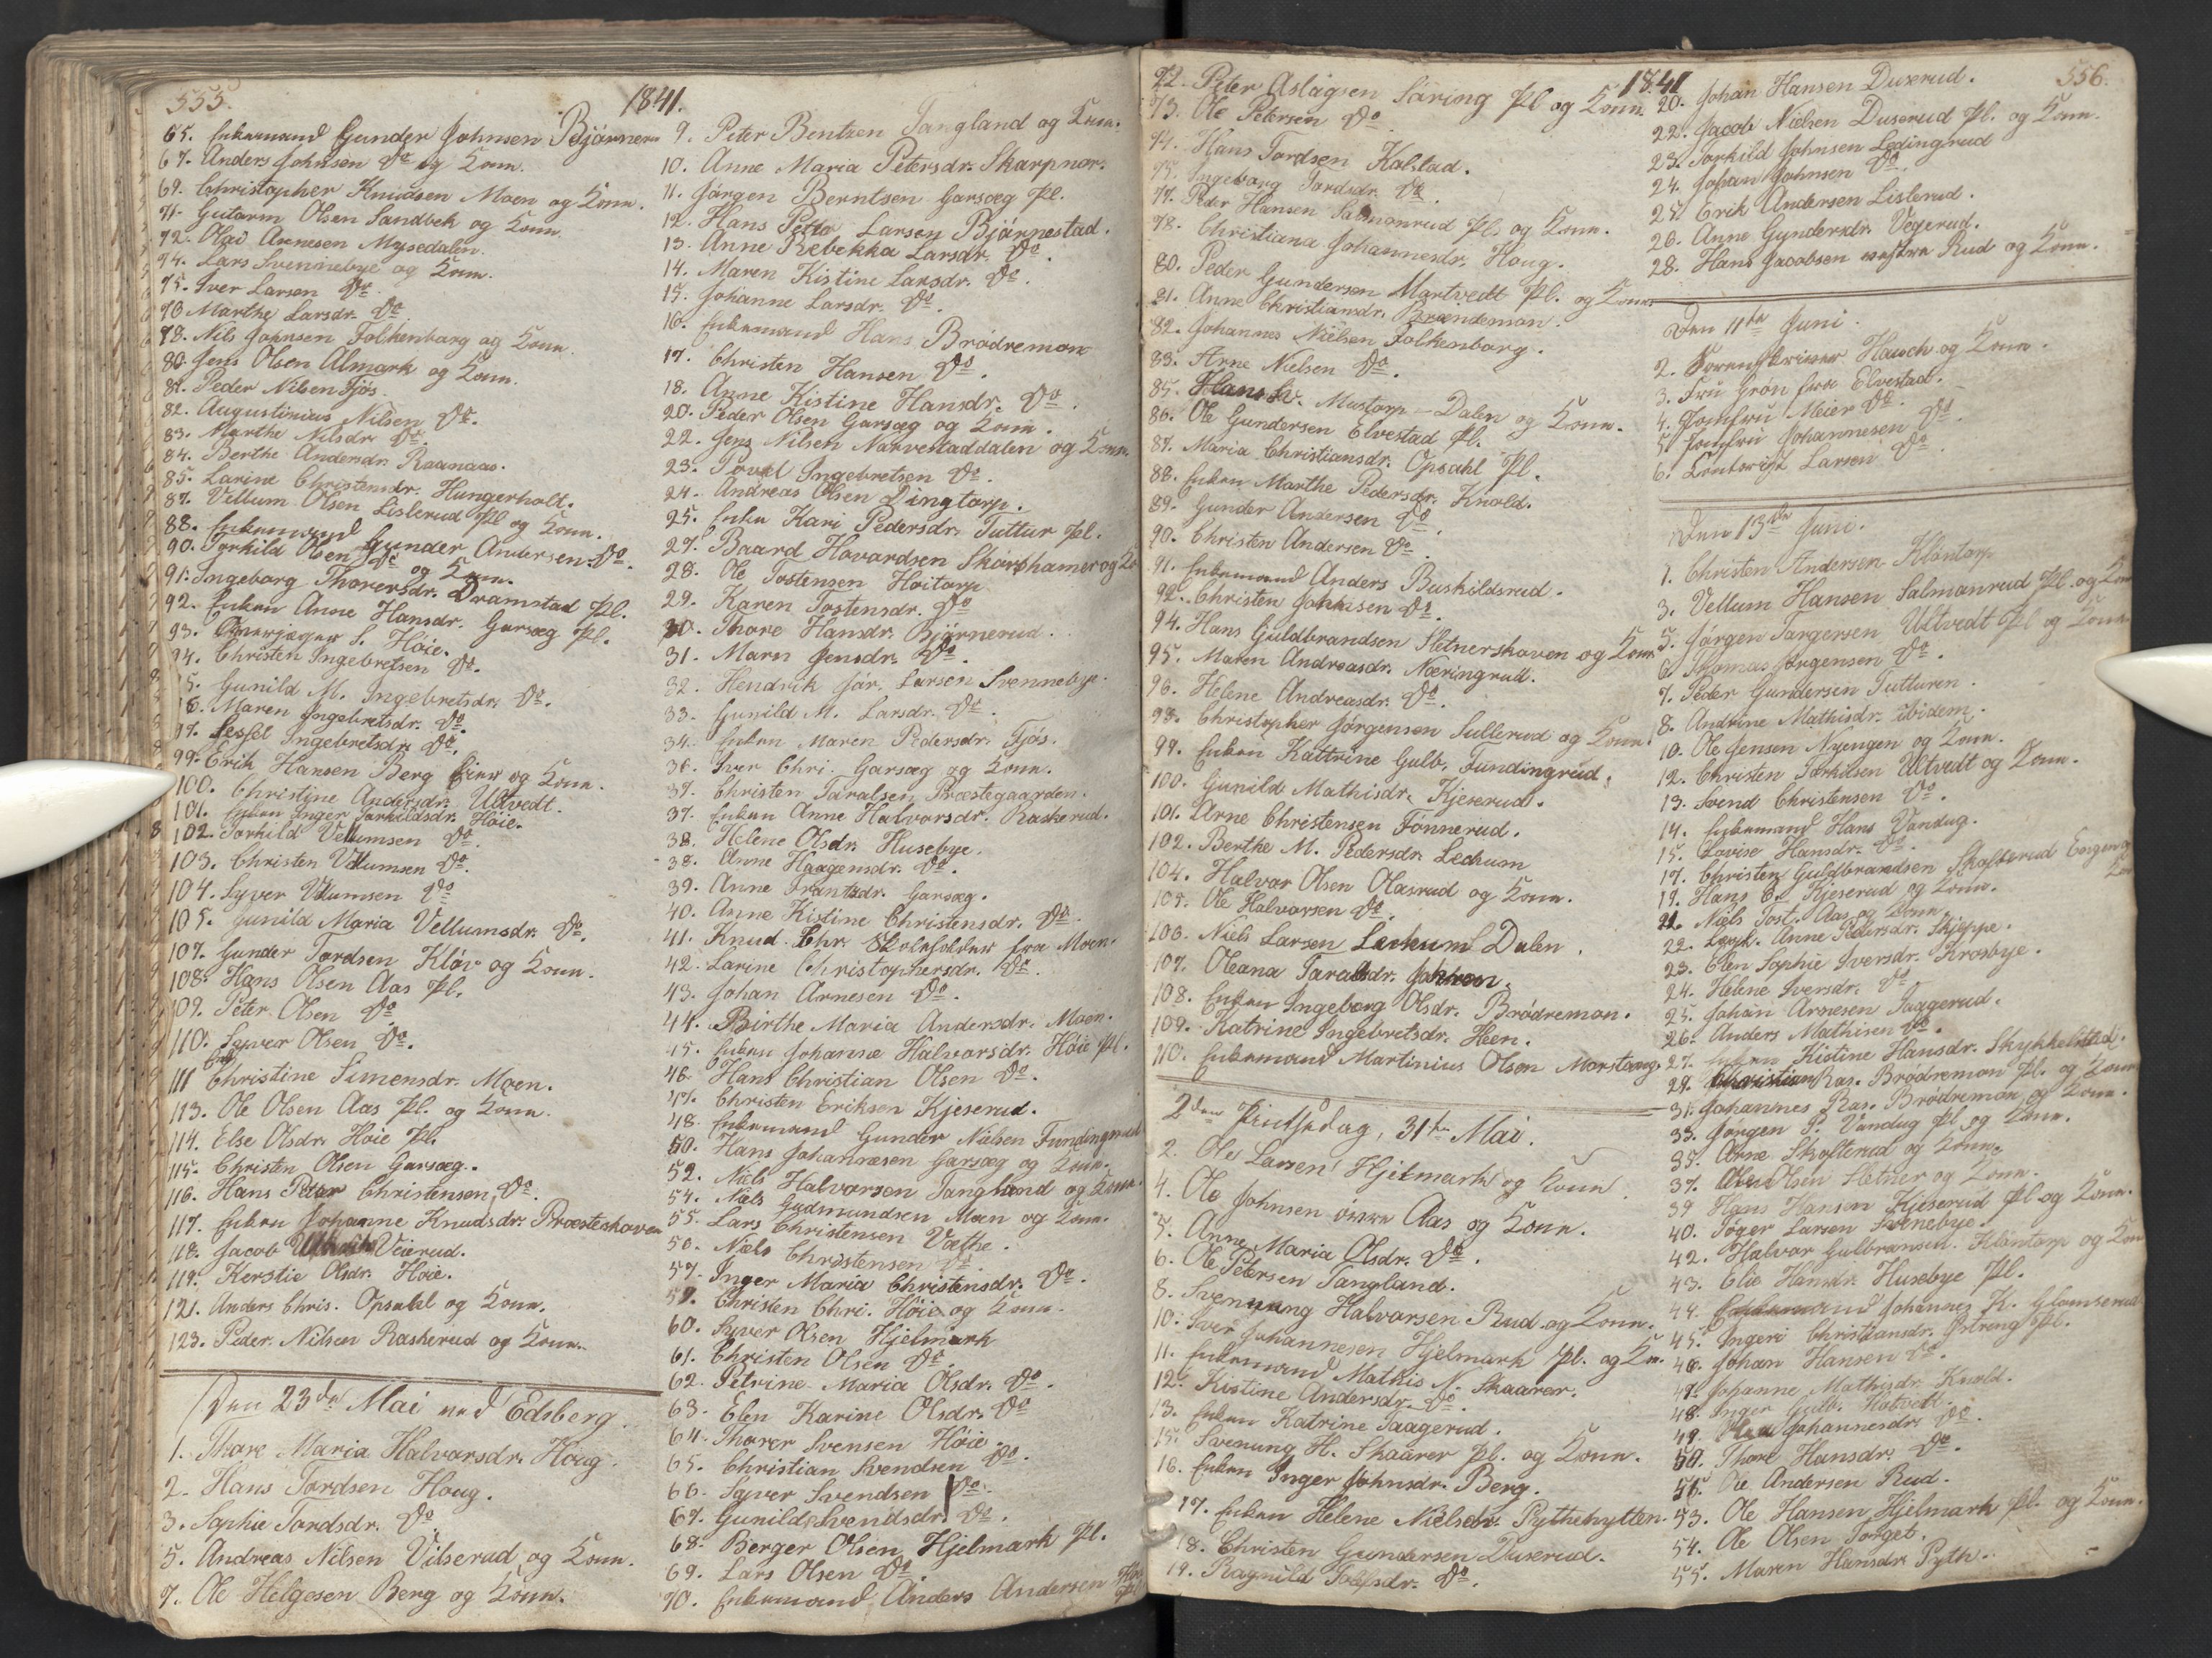 555.
1841.
65. Enkemand Gunder Johnsen Bjørnerud
67. Anders Johnsen Do og Kone.
69. Christopher Knudsen Moen og Kone.
71. Gutorm Olsen Sandbek og Kone
72. Olai Arnesen Mysedalen.
74. Lars Svennebye og Kone.
75. Iver Larsen Do.
76 Marthe Larsdr. Do
78. Nils Johnsen Folkenborg og Kone.
80. Jens Olsen Almark og Kone.
81. Peder Nilsen Fjøs
82. Augustinius Nilsen Do.
83. Marthe Nilsdr Do.
84. Berthe Andersdr. Raanaas.
85. Larine Christensdr. Hungerholt.
87. Vellum Olsen Lislerud Pl og Kone.
88. Enkemand Gunder Andersen Do.
90. Torkild Olsen Do og Kone.
91. Ingeborg Thorersdr. Dramstad Pl.
92. Enken Anne Hansdr. Garsæg Pl.
93. S. Høie.
94. Christen Ingebretsen Do.
95. Gunild M. Ingebretsdr. Do.
96. Maren Ingebretsdr. Do.
97. Sessel Ingebretsdr. Do.
99. Erik Hansen Berg Eier og Kone.
100. Christine Andersdr. Ultvedt.
101. Enken Inger Torkildsdr. Høie.
102. Torkild Vellumsen Do.
103. Christen Vellumsen Do.
104. Syver Vellumsen Do
105. Gunild Maria Vellumsdr. Do.
107. Gunder Tordsen Kløv og Kone.
108. Hans Olsen Aas Pl.
109. Peter Olsen Do
110. Syver Olsen Do.
111 Christine Simensdr. Moen.
113. Ole Olsen Aas Pl. og Kone.
114. Else Olsdr. Høie Pl.
115. Christen Olsen Garsæg.
116. Hans Peter Christensen, Do.
117. Enken Johanne Knudsdr. Præsteskoven
118. Jacob Veierud.
119. Kerstie Olsdr. Høie.
121. Anders Chris. Opsahl og Kone.
123. Peder Nilsen Raskerud og Kone.
Den 23de Mai ved Edsberg.
1. Thore Maria Halvorsdr. Houg.
2. Hans Tordsen Houg.
3. Sophie Tordsdr. Do
5. Andreas Nilsen Vilserud og Kone.
7. Ole Helgesen Berg og Kone.
9. Peter Bentzen Tangland og Kone.
10. Anne Maria Petersdr. Skarpnor.
11. Jørgen Berntsen Garsæg Pl.
12. Hans Petter Larsen Bjørnestad.
13. Anne Rebekka Larsdr. Do.
14. Maren Kistine Larsdr. Do.
15. Johanne Larsdr. Do.
16. Enkemand Hans Brødremon
17. Christen Hansen Do.
18. Anne Kistine Hansdr. Do.
20. Peder Olsen Garsæg og Kone.
22. Jens Nilsen Narvestaddalen og Kone.
23. Povel Ingebretsen Do.
24. Andreas Olsen Dingtorp.
25. Enke Kari Pedersdr. Tuttur Pl.
27. Baard Hovardsen Skovshamer og Ko
28. Ole Tostensen Høitorp
29. Karen Tostensdr. Do
30. Thore Hansdr. Bjørnerud.
31. Marn Jensdr. Do.
32. Hendrik Jør. Larsen Svennebye.
33. Gunild M. Larsdr. Do.
34. Enken Maren Pedersdr. Fjøs.
36. Iver Chri. Garsæg og Kone.
37. Christen Taralsen Præstegaarden.
37. Enken Anne Halvorsdr. Raskerud.
38. Helene Olsdr. Husebye.
38. Anne Haagensdr. Do.
39. Anne Frantzdr. Garsæg.
40. Anne Kistine Christensdr. Do.
41. Knud Chr. Skoleholder fra Moen.
42. Larine Christophersdr. Do.
43. Johan Arnesen Do.
44. Birthe Maria Andersdr. Moen.
45. Enken Johanne Halvorsdr. Høie Pl.
46. Hans Christian Olsen Do.
47. Christen Eriksen Kjeserud.
48. Enkemand Gunder Nielsen Fundingrud
50. Hans Johannesen Garsæg og Kone.
52. Niels Halvorsen Tangland og Kone.
54. Niels Gudmundsen Moen og Kone.
55. Lars Christensen Væthe.
56. Niels Christensen Do
57. Inger Maria Christensdr. Do.
59. Christen Chri. Høie og Kone.
60. Syver Olsen Hjelmark
61. Christen Olsen Do.
62. Petrine Maria Olsdr. Do.
63. Elen Karine Olsdr. Do
64. Thorer Svensen Høie.
65. Christian Svendsen Do.
66. Syver Svendsen Do.
67. Gunild Svendsdr. Do.
68. Berger Olsen Hjelmark Pl.
69. Lars Olsen Do.
70. Enkemand Anders Andersen
1841
556.
72. Peter Aslagsen Søring Pl og Kone.
73. Ole Petersen Do
74. Hans Tordsen Kolstad.
75. Ingeborg Tordsdr. Do.
77. Peder Hansen Salmonrud Pl. og Kone.
78. Christiana Johannesdr. Houg.
80. Peder Gundersen Martvedt Pl. og Kone.
81. Anne Christiansdr. Brændemon.
82. Johannes Nielsen Folkenborg.
83. Arne Nielsen Do.
85. Hans Hv. Mustorp - Dalen og Kone.
86. Ole Gundersen Elvestad Pl.
87. Maria Christiansdr. Opsahl Pl.
88. Enken Marthe Pedersdr. Knold.
89. Gunder Andersen Do.
90. Christen Andersen Do.
91. Enkemand Anders Buskildsrud.
92. Christen Johnsen Do.
94. Hans Guldbrandsen Sletnershoven og Kone
95. Maren Andreasdr. Næringrud.
96. Helene Andreasdr. Do.
98. Christopher Jørgensen Sullerud og Kone.
99. Enken Kattrine Gulb. Fundingrud.
100. Gunild Mathisdr. Kjeserud.
101. Arne Christensen Fønnerud.
102. Berthe M. Pedersdr. Lechum
104. Halvor Olsen Olasrud og Kone.
105. Ole Halvorsen Do.
106. Niels Larsen Lechum Dalen.
107. Oleana Taralsdr.
108. Enken Ingeborg Olsdr. Brødremon.
109. Katrine Ingebretsdr. Heen.
110. Enkemand Martinius Olsen Morstong.
2den Pintsedag, 31te Mai.
2. Ole Larsen Hjelmark og Kone.
4. Ole Johnsen øvre Aas og Kone.
5. Anne Maria Olsdr. Do.
6. Ole Petersen Tangland.
8. Svennung Halvorsen Rud og Kone.
10. Iver Johannesen Hjelmark Pl. og Kone.
11. Enkemand Mathis N. Skaarer.
12. Kistine Andersdr. Do.
13. Enken Katrine Taagerud.
15. Svenung H. Skaarer Pl. og Kone.
16. Enken Inger Johnsdr. Berg.
17. Enken Helene Nielsdr. Pythehytten.
18. Christen Gundersen Duserud.
19. Ragnild Do.
20. Johan Hansen Duserud.
22. Jacob Nielsen Duserud Pl. og Kone.
23. Torkild Johnsen Ledingrud
24. Johan Johnsen Do.
25. Erik Andersen Lislerud.
26. Anne Gundersdr. Vegerud.
28. Hans Jacobsen vestre Rud og Kone.
Den 11te Juni.
2. Sorenskriver Hausch og Kone.
3. Fru Grøn fra Elvestad.
4. Jomfru Meier Do.
5. Jomfru Johannesen Do
6. Contorist Larsen Do
Den 13de Juni.
1. Christen Andersen Klontorp
3. Vellum Hansen Salmonrud Pl. og Kone
5. Jørgen Torgersen Ultvedt Pl og Kone
6. Thomas Jørgensen Do.
7. Peder Gundersen Tutturen.
8. Andrine Mathisdr. ibidem.
10. Ole Jensen Nyengen og Kone.
12. Christen Torkilsen Ultvedt og Kone.
13. Svend Christensen Do.
14. Enkemand Hans Vandug.
15. Lovise Hansdr. Do.
17. Christen Guldbrandsen Skofterud Engen og
19. Hans E. Kjeserud og Kone.
21. Niels Tost. Aas og Kone.
22. Anne Pedersdr. Skjeppe.
23. Elen Sophie Iversdr. Krosbye.
24. Helene Iversdr. Do
25. Johan Arnesen Taagerud.
26. Anders Mathisen Do.
27. Enken Kistine Hansdr. Skykkelstad.
29. Christian Ras. Brødremon Pl. og Kone
31. Johannes Ras. Brødremon og Kone.
33. Jørgen P. Vandug Pl og Kone.
35. Arne Skofterud og Kone.
37. Olsen Sletner og Kone.
39 Hans Hansen Kjeserud Pl og Kone.
40. Tøger Larsen Svenebye.
42. Halvor Gulbransen Klontorp og Kone
43. Elie Hansdr. Husebye Pl.
44. Enkemand Johannes K. Glomserud
45. Ingeri Christiansdr. Østreng Pl.
46. Johan Hansen Do.
47. Johanne Mathisdr. Knold.
48. Inger Gulb. Hatvedt.
49. Johannesdr. Do.
50. Thore Hansdr. Do.
51. Ole Andersen Rud.
53. Ole Hansen Hjelmark Pl. og Kone.
54. Ole Olsen Torget.
55. Maren Hansdr Pyth.